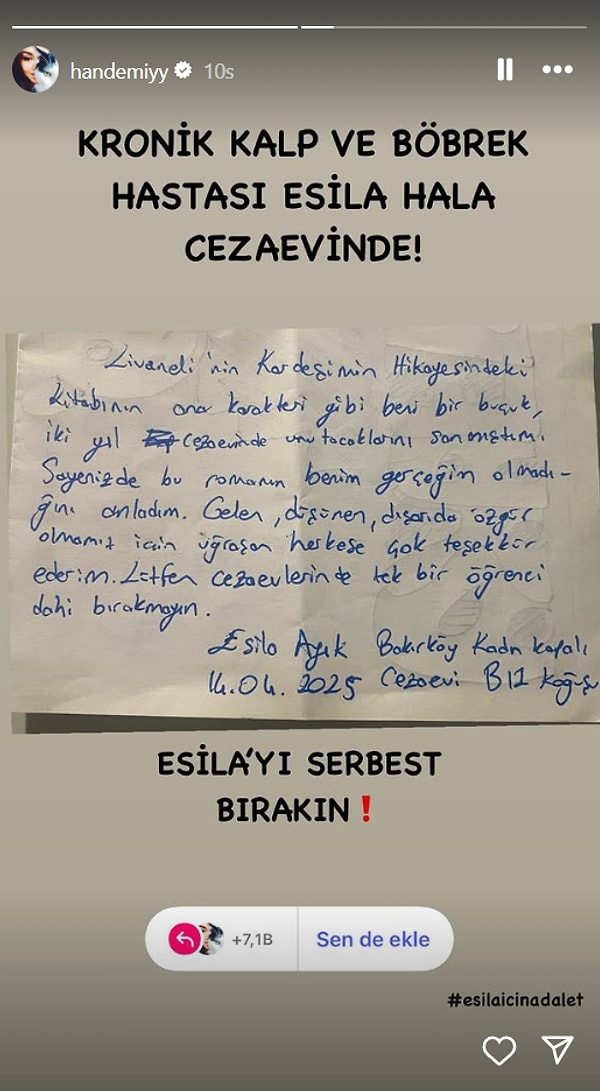 handemiyy 10s
KRONİK KALP VE BÖBREK
HASTASI ESİLA HALA
CEZAEVİNDE!
Livaneli'nin Kardeşimin Hikayesindeki
kitabının ana karakteri gibi beni bir buçuk,
iki yıl cezaevinde unutacaklarını sanmıştım.
Sayenizde bu romanın benim gerçeğim olmadı-
ğını anladım. Gelen, düşünen, dışarıda özgür
olmamız için uğraşan herkese çok teşekkür
ederim. Lütfen cezaevlerinde tek bir öğrenci
dahi bırakmayın.
Esila Ayık Bakırköy Kadın Kapalı
14.04.2025 Cezaevi B12 Koğuşu
ESİLA'YI SERBEST
BIRAKIN❗
+7,1B Sen de ekle
#esilaicinadalet